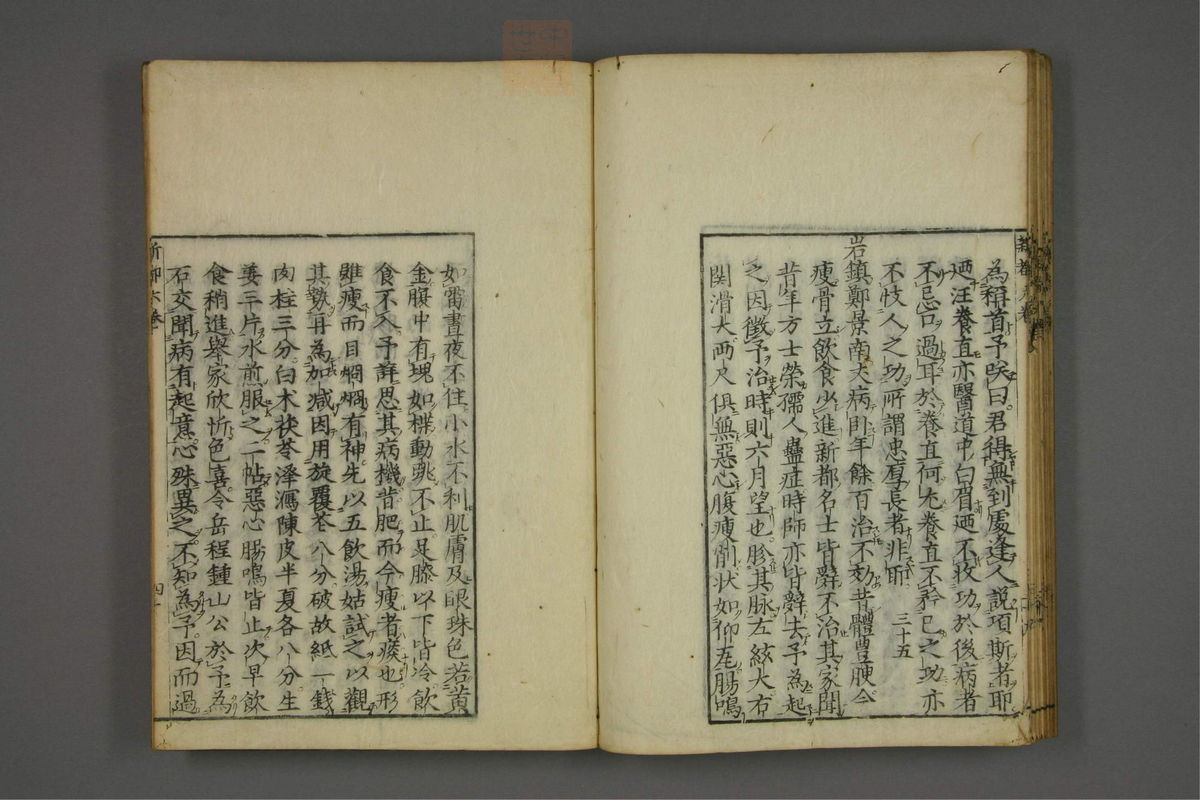 為稱首予唉曰君得無到處逢人說項斯者耶
廼汪養直亦醫道中白眉廼不收功於後病者
不忌口過耳於養直何尤養直不矜已之功亦
不忮人之功所謂忠厚長者非耶 三十五
岩鎮鄭景南大病卧年餘百治不効昔體豊腴今
瘦骨立飲食少進新都名士皆辭不治其家聞
昔年方士榮孺人蠱症時師亦皆辭去予為起
之因徵予治時則六月望也胗其脉左絃大右
関滑大两尺俱無惡心腹瘦削状如仰瓦腸鳴
如雷晝夜不住小水不利肌膚及眼珠色若黄
金腹中有塊如楪動跳不止足膝以下皆冷飲
食不入予詳思其病機昔肥而今瘦者痰也形
雖瘦而目烱烱有神先以五飲湯姑試之以觀
其勢再為加减因用旋覆花八分破故紙一銭
肉桂三分白术茯苓泽瀉陳皮半夏各八分生
姜三片水煎服之二帖惡心腸鳴皆止次早飲
食稍進舉家欣忻色喜令岳程鍾山公於予為
石交聞病有起意心殊異之不知為予因而過